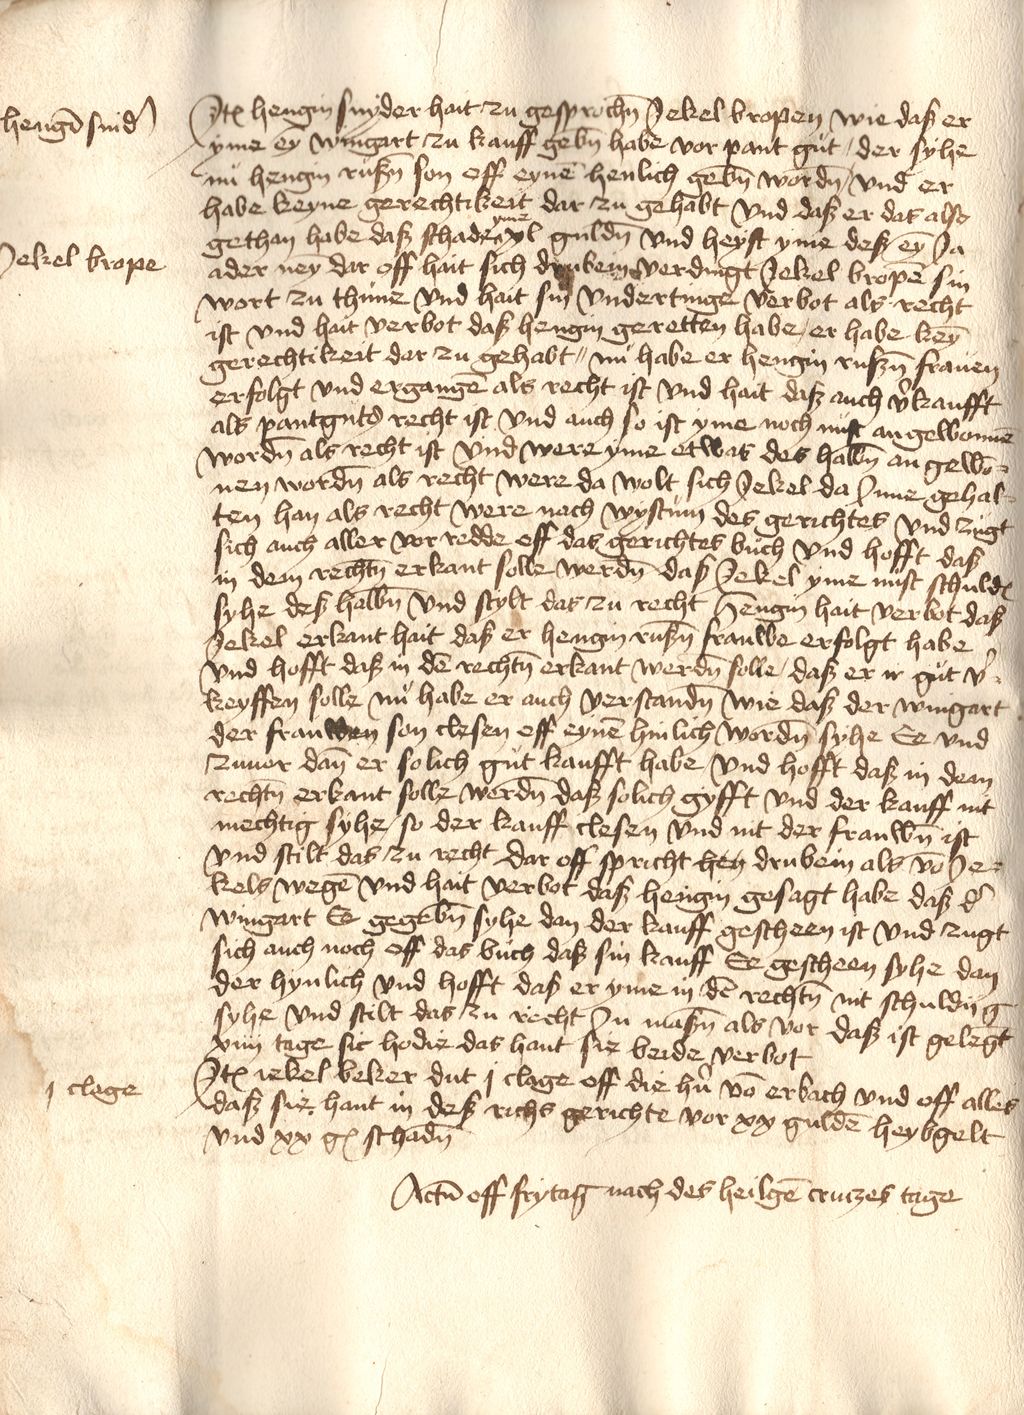 hengin snider
Itē hengin snyder hait zu gesprochē Jekel bropen wie daß er
yme eȳ wingart zu kauff gebē habe vor pant gut / der syhe
nu hengin rußē son off eynē henlich gebē wordē / vnd er
habe keyne gerechtikeit dar zu gehabt vnd daß er das also
gethan habe daß schade yme xl guldē vnd heyst yme deß eȳ Ja
Jekel brope
ader neȳ dar off hait sich drubein verdingt Jekel bropē sin
wort zu thune vnd hait sin vndertinge verbot als recht
ist vnd hait verbot daß hengin geretten habe / er habe keȳ
gerechtikeit dar zu gehabt // nu habe er hengin rußē frauen
erfolgt vnd ergangē als recht ist vnd hait daß auch v'kaufft
als pantgude recht ist vnd auch so ist yme noch nust an gewonnē
wordē als recht ist vnd were yme etwas des halbē an gewō-
nen wordē als recht were da wolt sich Jekel da Inne gehal-
ten han als recht were nach wystum des gerichtes vnd zugt
sich auch aller vor redde off das gerichtes buch vnd hofft daß
in dem rechtē erkant solle werdē daß Jekel yme nust schuldē
syhe deß halbē vnd stylt das zu recht Hengin hait verbot daß
Jekel erkant hait daß er hengin rußē frauwe erfolgt habe
vnd hofft daß in dē rechtē erkant werdē solle / daß er ir gut v'-
keyffen solle nu habe er auch verstandē wie daß der wingart
der frauwen son clesen off eynē hinlich wordē syhe Ee vnd
zuuor dan er solich gut kaufft habe vnd hofft daß in dem
rechtē erkant solle werdē daß solich gyfft vnd der kauff nit
mechtig syhe / so der kauff clesen vnd nit der frauwē ist
vnd stilt das zu recht dar off spricht hen drubein als vō Je-
kels wegē vnd hait verbot daß hengin gesagt habe daß d'
wingart Ee gegebē syhe dan der kauff gescheen ist vnd zugt
sich auch noch off das buch daß sin kauff Ee gescheen syhe dan
der hynlich vnd hofft daß er yme in dē rechtē nit schuldig
syhe vnd stilt das zu recht In maßē als vor daß ist gelegt
xiiii tage sic hodie das hant sie beide verbot
j clage
Itē iekel beker dut j clage off die hn̄ vō erbach vnd off alles
daß sie hant in deß richs gerichte vor xx guldē heybgelt
vnd xx gē schadē
Actū off frytag nach des heilgē cruczes tage